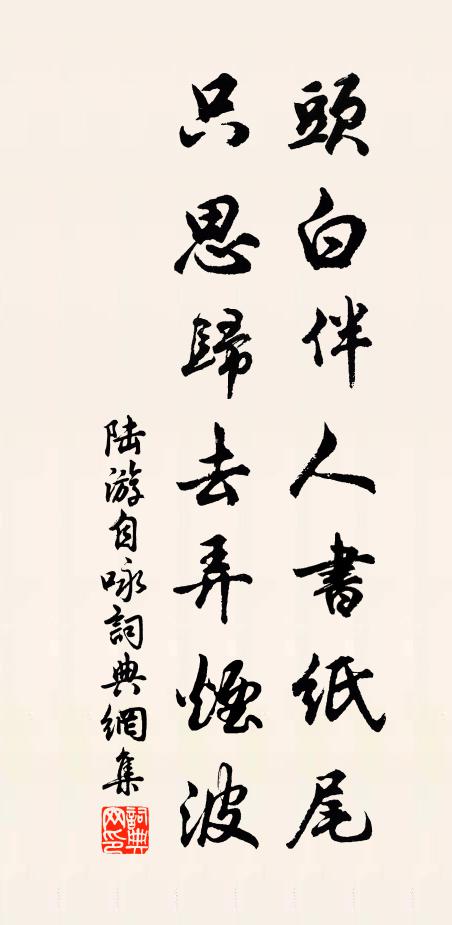 頭白伴人書紙尾
只思歸去弄煙波
陆游自咏詞典網集
詞典网印